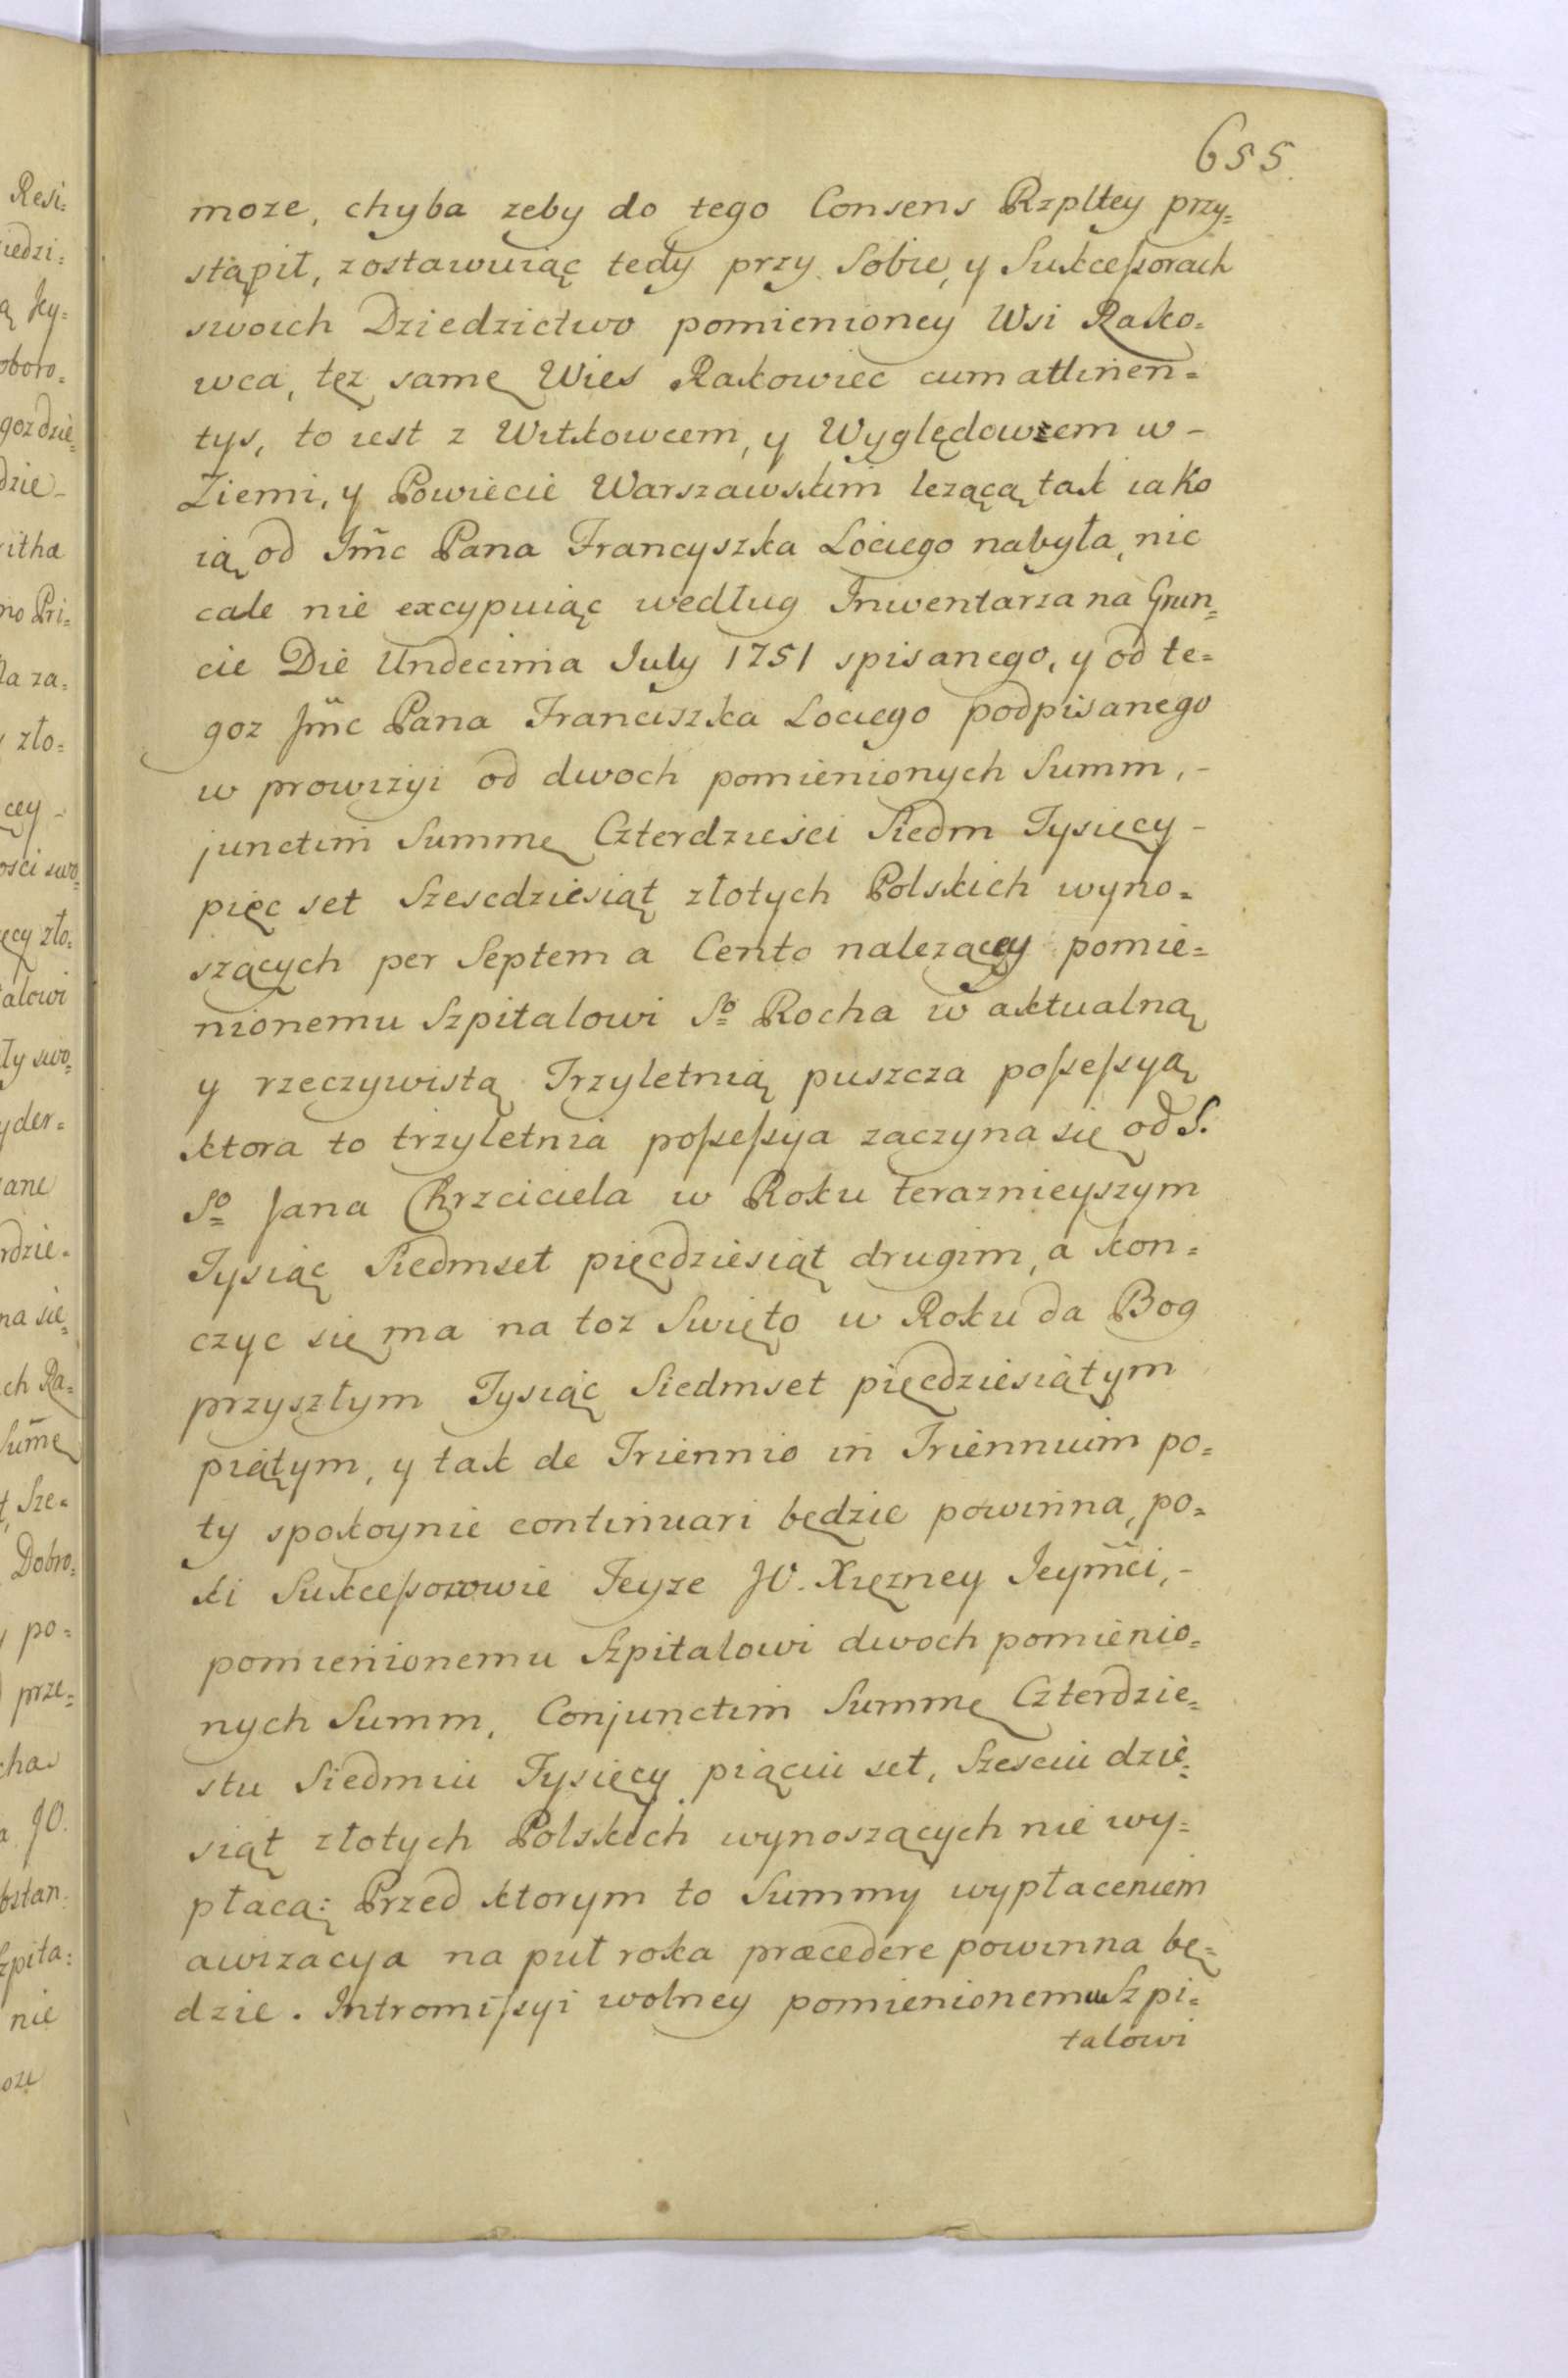 655.
moze, chyba zeby do tego Consens Rzpltey przy=
stąpił, zostawuiąc tedy przy Sobie, y Sukceſsorach
swoich Dziedzictwo pomienioney Wsi Rako=
wca, tęz samę Wies Rakowiec cum attinen=
tys, to iest z Witkowcem, y Wyględowzem w -
Ziemi, y Powiecie Warszawskim lezącą tak iako
ią od Jm̃c Pana Francyszka Lociego nabyła, nic
cale nie excypuiąc według Inwentarza na Grun=
cie Die Undecima July 1751 spisanego, y od te=
goz Jm̃c Pana Franciszka Lociego podpisanego
w prowizyi od dwoch pomienionych Summ, -
junctim Summę Czterdziesci Siedm Tysięcy -
pięc set Szescdziesiąt złotych Polskich wyno=
szących per Septem a Cento nalezącey pomie=
nionemu Szpitalowi So Rocha w aktualną
y rzeczywistą Trzyletnią puszcza poſseſsyą
ktora to trzyletnia poſseſsya zaczyna się od S.
So Jana Chrzciciela w Roku teraznieyszym
Tysiąc Siedmset pięcdziesiąt drugim, a kon=
czyc się ma na toz Swięto w Roku da Bog
przyszłym Tysiąc Siedmset pięcdziesiątym
piątym, y tak de Triennio in Triennium po=
ty spokoynie continuari będzie powinna, po=
ki Sukceſsorowie Teyze JO. Xięzney Jeym̃ci, -
pomienionemu Szpitalowi dwoch pomienio=
nych Summ, Conjunctim Summę Czterdzie=
stu Siedmiu Tysięcy piąciu set, Szesciu dzie=
siąt złotych Polskich wynoszących nie wy=
płacą: Przed ktorym to Summy wypłaceniem
awizacya na puł roka præcedere powinna bę=
dzie. Intromiſsyi wolney pomienionemu Szpi=
talowi
Resi=
iedzi=
ą Jey=
oboro=
goz dzie=
dzie -
itha
no Pri=
la za=
zło=
cey -
osci swo=
ęcy zło=
talowi
ły swo=
yder=
ane
rdzie=
na się
ch Ra=
Sum̃ę
Sze=
Dobro=
y po=
prze=
cha
JO.
bstan
zpita=
nie
oze